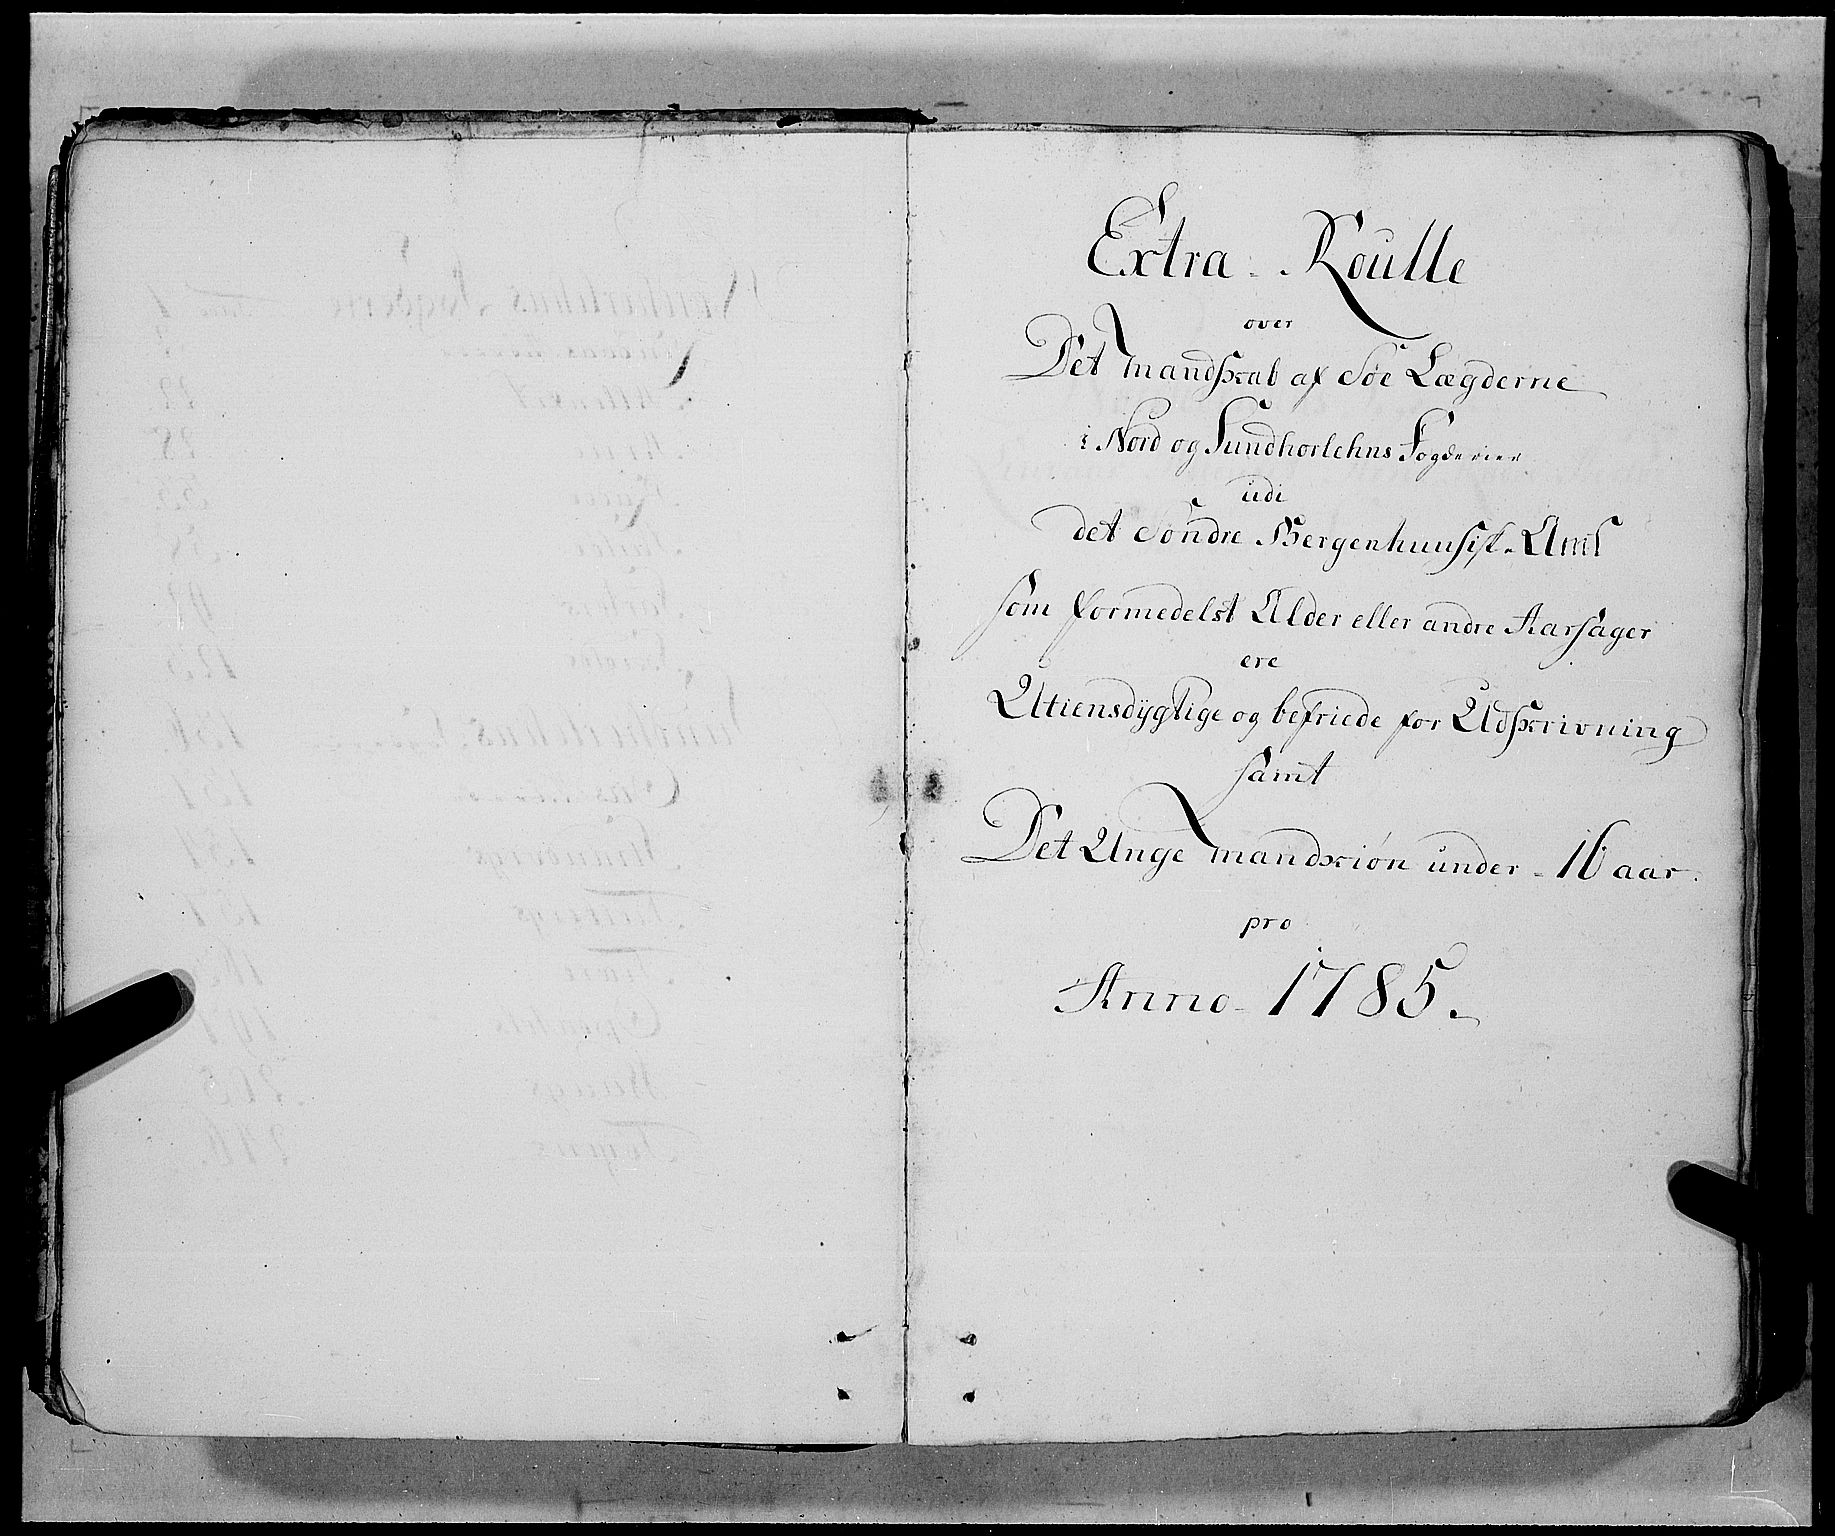 Extra - Roulle
over
Det Mandskab af Søe Lægderne
i Nord og Sundhorlehns Fogderier
udi
det Søndre Bergenhuusiske Amt
som formedelst Alder eller andre Aarsager
ere
Utiensdygtige og befriede for Udskrivning
samt
Det Unge Mandkiøn under - 16 aar.
pro
Anno - 1785.